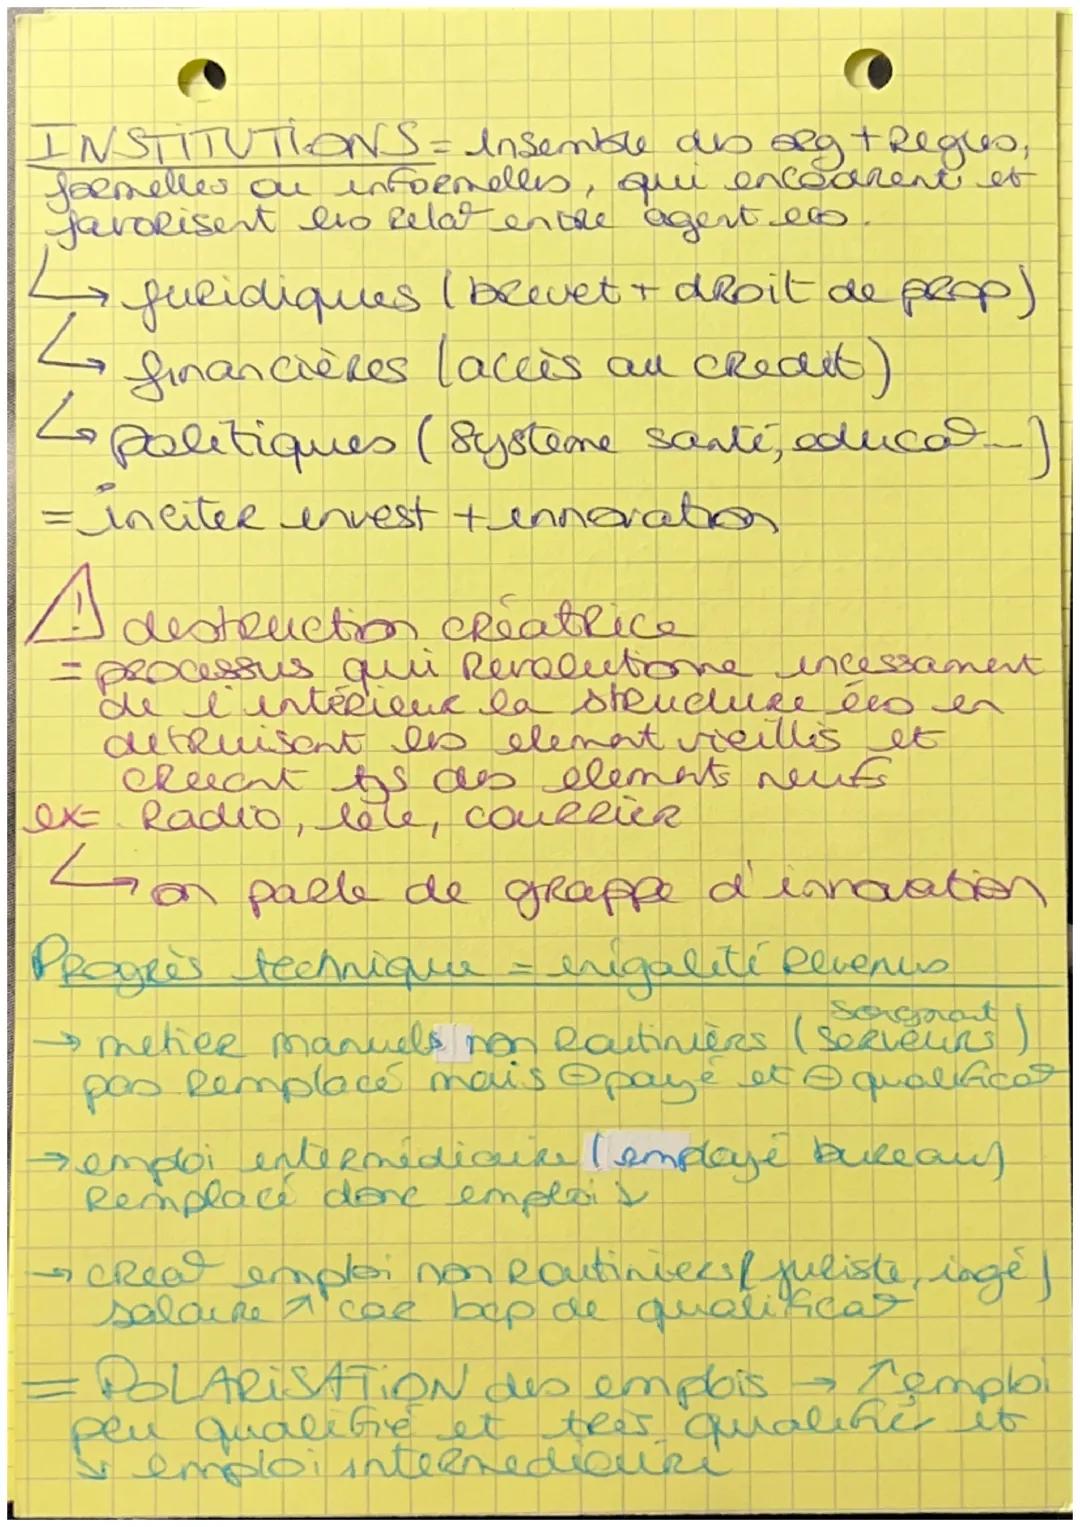 INSTITUTIONS = Ensemble des org + Règles,
formelles ou informelles, qui encadrent et
favorisent les relat° entre agent eco.
↳ juridiques (brevet + droit de prop)
↳ financières (accès au credit)
↳ politiques (système santé, educat° ...)
= inciter invest + innovation
⚠ destruction créatrice
= processus qui Revolutionne incessament
de l'intérieur la structure éco en
detruisant les element vieillis et
creeant ts des elements neufs
ex = Radio, télé, courrier
↳ on parle de grappe d'innovation
Progrès technique = inégalité Revenus
→ metier manuels non Routiniers (serveurs, soignant)
pas Remplacé mais ⊖ payé et ⊖ qualificat°
→ emploi intermédiaire (employé bureau)
Remplacé donc emploi ↘
→ creat° emploi non Routiniers (juriste, ingé)
salaire ↗ car bcp de qualificat°
= POLARISATION des emplois → ↗ emploi
peu qualifié et très qualifié et
↘ emploi intermediaire